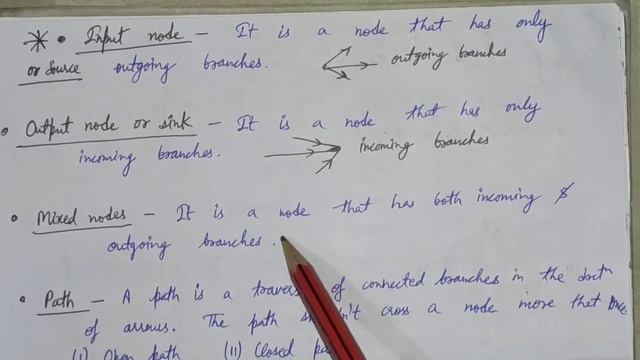 * • Input node – It is a node that has only
or source outgoing branches. outgoing branches
• Output node or sink – It is a node that has only
incoming branches. incoming branches
• Mixed nodes – It is a node that has both incoming &
outgoing branches.
• Path – A path is a of connected branches in the dirctn
of arrows. The path cross a node more that once
(I) Open path (II) Closed